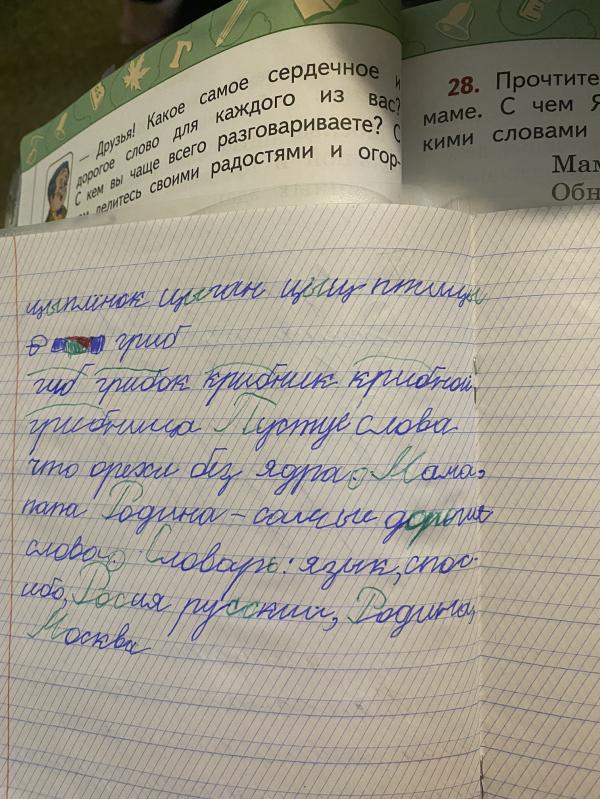 — Друзья! Какое самое сердечное и
дорогое слово для каждого из вас?
С кем вы чаще всего разговариваете? С
делитесь своими радостями и огор-
28. Прочтите
маме. С чем Я
кими словами
Мам
Обн
цыплёнок цыган цыц птицы
гриб
гиб грибок крибник крибной
грибница Пустуе слова
что орехи без ядра. Мама,
папа Родина – самые дорогие
слова. Словарь: язык,спос-
ибо, Росия русский, Родина,
Москва